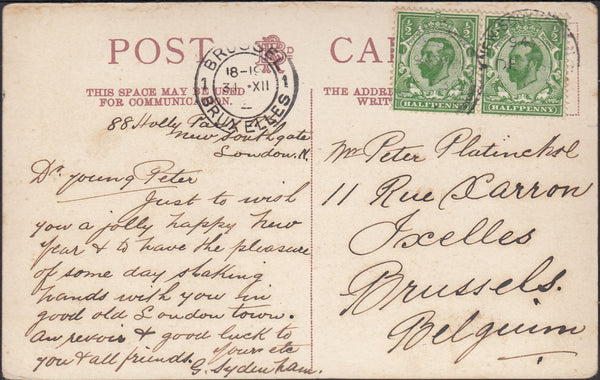 POST CA
THIS SPACE MAY BE USED
FOR COMMUNICATION.
THE ADDRE
WRIT
BRUSSEL
1 18-19 1
31 XII
BRUXELLES
½ ½
HALFPENNY
½ ½
HALFPENNY
88 Holly
New Southgate
London. N.
Dr. young Peter
Just to wish
you a jolly happy New
Year & to have the pleasure
of some day shaking
hands with you in
good old London town.
au revoir & good luck to
you & all friends. yours etc
G. Sydenham.
Mr Peter Platinckol
11 Rue Xarron
Ixelles
Brussels.
Belguim